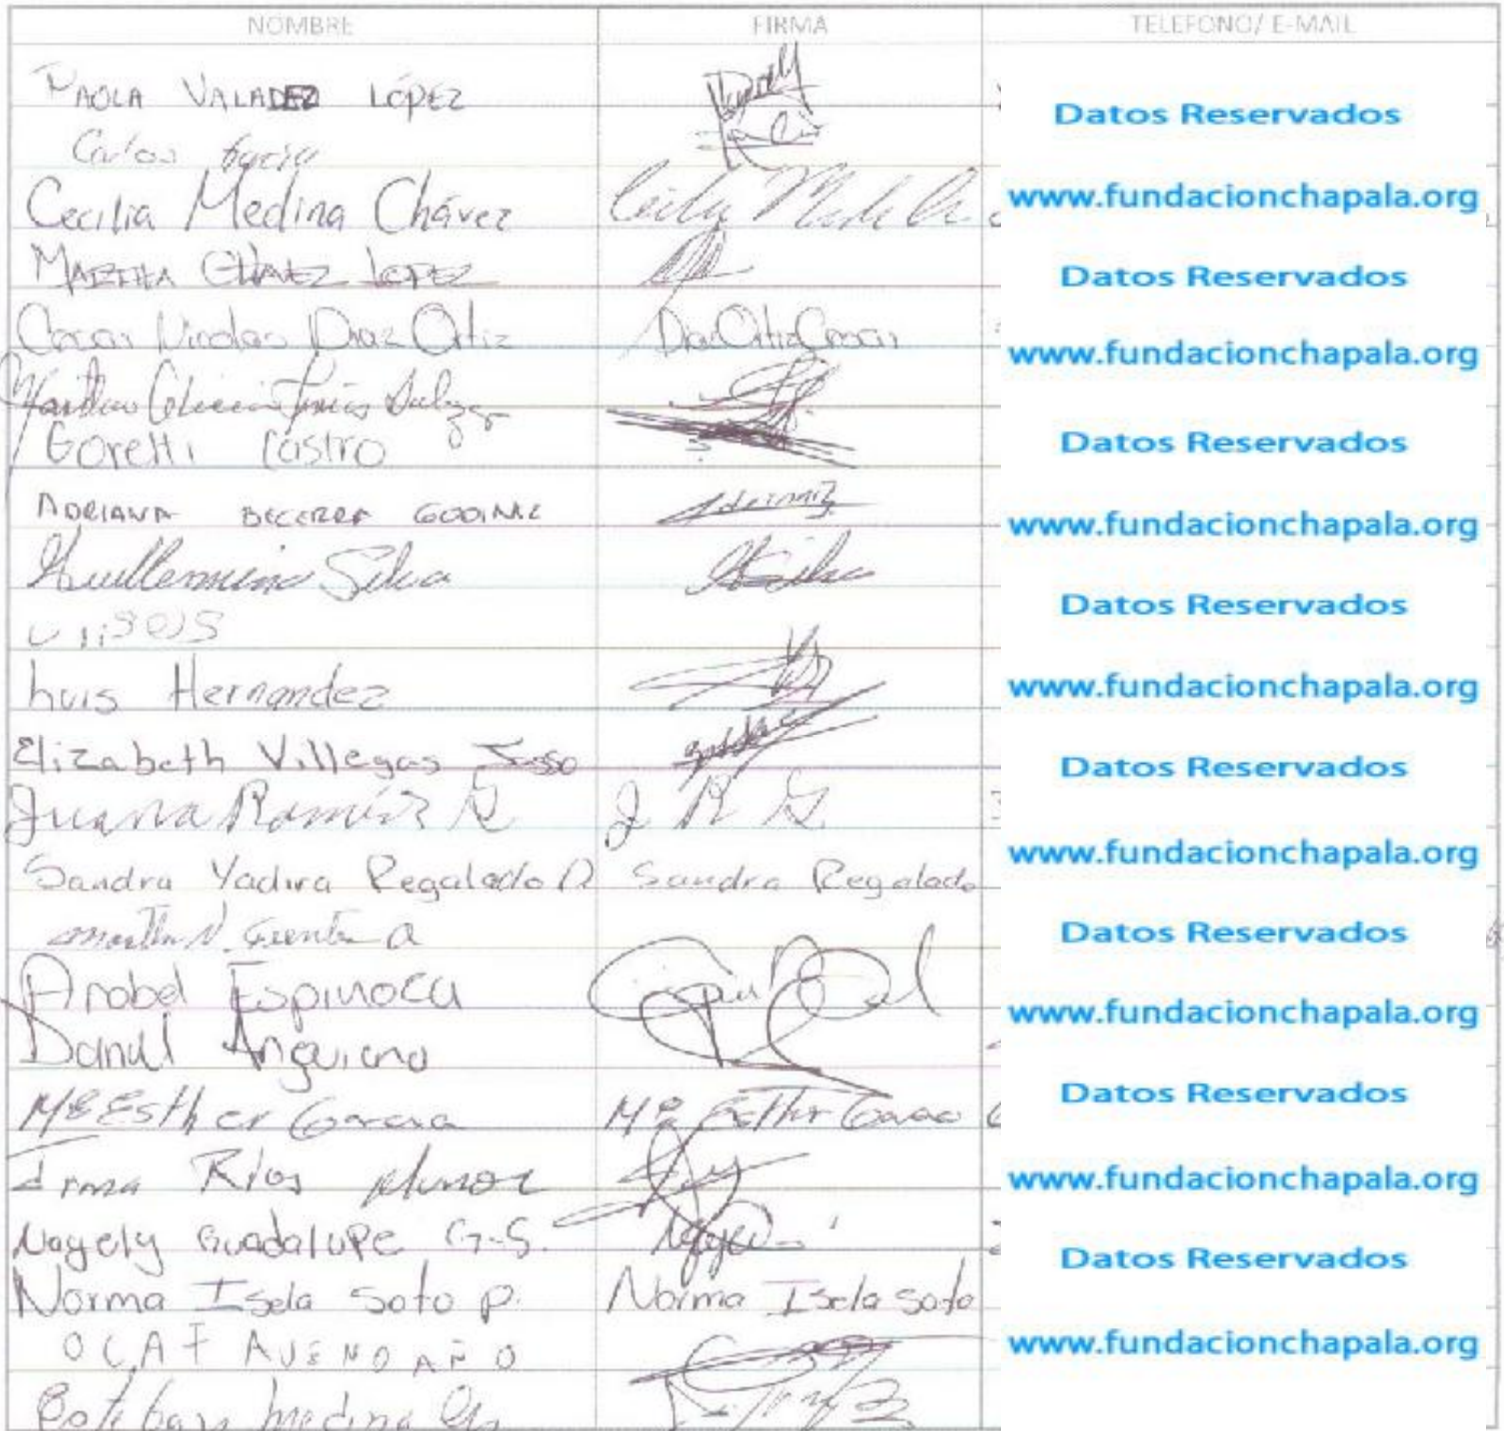 NOMBRE FIRMA TELEFONO/ E-MAIL
PAOLA VALADEZ LÓPEZ
Datos Reservados
Carlos
Cecilia Medina Chávez
www.fundacionchapala.org
MARTHA CHAVEZ LOPEZ
Datos Reservados
Diaz Ortiz
www.fundacionchapala.org
Goretti Castro
Datos Reservados
ADRIANA BECERRA GODINEZ
www.fundacionchapala.org
Guillermina Silva
Datos Reservados
Luis Hernandez
www.fundacionchapala.org
Elizabeth Villegas
Datos Reservados
Juana Ramírez G J R G.
www.fundacionchapala.org
Sandra Yadira Regalado D Sandra Regalado
Datos Reservados
Anabel Espinoza
www.fundacionchapala.org
Daniel Anguiano
Datos Reservados
Mª Esther Garcia Mª Esther Garcia
Irma Rios Munoz
www.fundacionchapala.org
Nayely Guadalupe G-S.
Datos Reservados
Norma Isela Soto P. Norma Isela Soto
www.fundacionchapala.org
AVENDAÑO
Esteban medina